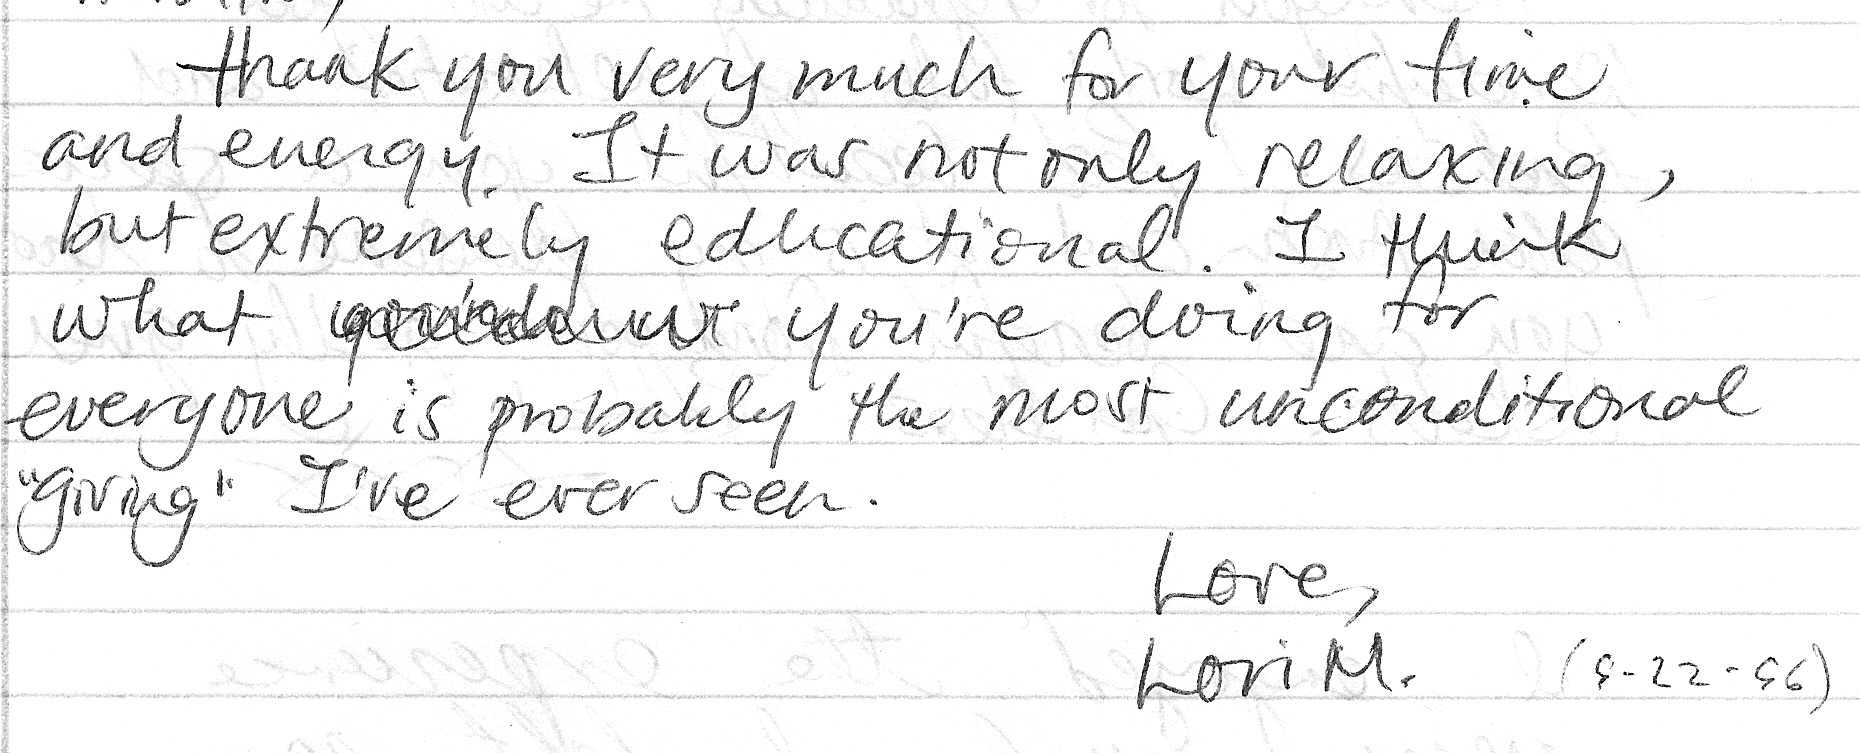 thank you very much for your time
and energy. It was not only relaxing,
but extremely educational. I think
what you're doing for
everyone is probably the most unconditional
"giving" I've ever seen.
Love,
Lori M.